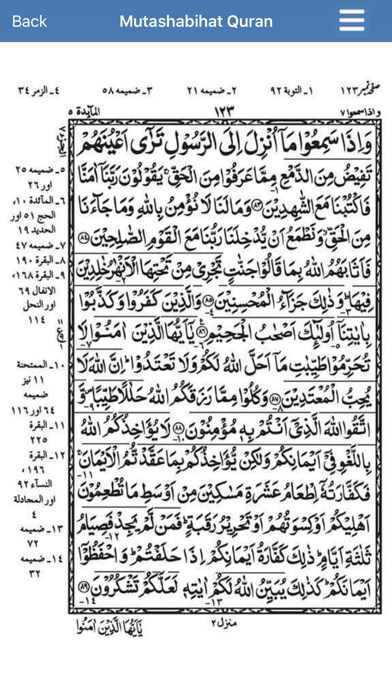 Back
Mutashabihat Quran
صفحہ نمبر ۱۲۳ ۱ـ التوبة ۹۲ ۲ـ ضمیمه ۲۱ ۳ـ ضمیمه ۵۸ ٤ـ الزمر ۳٤
واذا سمعوا ۷ ۱۲۳ المآیدة ۵
وَاِذَا سَمِعُوْا مَآ اُنْزِلَ اِلَى الرَّسُوْلِ تَرٰٓى اَعْيُنَهُمْ
تَفِيْضُ مِنَ الدَّمْعِ مِمَّا عَرَفُوْا مِنَ الْحَقِّ ۚ يَقُوْلُوْنَ رَبَّنَآ اٰمَنَّا
فَاكْتُبْنَا مَعَ الشّٰهِدِيْنَ ﴿۸۳﴾ وَمَا لَنَا لَا نُؤْمِنُ بِاللّٰهِ وَمَا جَآءَنَا
مِنَ الْحَقِّ ۙ وَنَطْمَعُ اَنْ يُّدْخِلَنَا رَبُّنَا مَعَ الْقَوْمِ الصّٰلِحِيْنَ ﴿۸۴﴾
فَاَثَابَهُمُ اللّٰهُ بِمَا قَالُوْا جَنّٰتٍ تَجْرِيْ مِنْ تَحْتِهَا الْاَنْهٰرُ خٰلِدِيْنَ
فِيْهَا ۭ وَذٰلِكَ جَزَآءُ الْمُحْسِنِيْنَ ﴿۸۵﴾ وَالَّذِيْنَ كَفَرُوْا وَكَذَّبُوْا
بِاٰيٰتِنَآ اُولٰٓئِكَ اَصْحٰبُ الْجَحِيْمِ ﴿۸۶﴾ يٰٓاَيُّهَا الَّذِيْنَ اٰمَنُوْا لَا
تُحَرِّمُوْا طَيِّبٰتِ مَآ اَحَلَّ اللّٰهُ لَكُمْ وَلَا تَعْتَدُوْا ۭ اِنَّ اللّٰهَ لَا
يُحِبُّ الْمُعْتَدِيْنَ ﴿۸۷﴾ وَكُلُوْا مِمَّا رَزَقَكُمُ اللّٰهُ حَلٰلًا طَيِّبًا ۠ وَّ
اتَّقُوا اللّٰهَ الَّذِيْٓ اَنْتُمْ بِهٖ مُؤْمِنُوْنَ ﴿۸۸﴾ لَا يُؤَاخِذُكُمُ اللّٰهُ
بِاللَّغْوِ فِيْٓ اَيْمَانِكُمْ وَلٰكِنْ يُّؤَاخِذُكُمْ بِمَا عَقَّدْتُّمُ الْاَيْمَانَ ۚ
فَكَفَّارَتُهٗٓ اِطْعَامُ عَشَرَةِ مَسٰكِيْنَ مِنْ اَوْسَطِ مَا تُطْعِمُوْنَ
اَهْلِيْكُمْ اَوْ كِسْوَتُهُمْ اَوْ تَحْرِيْرُ رَقَبَةٍ ۭ فَمَنْ لَّمْ يَجِدْ فَصِيَامُ
ثَلٰثَةِ اَيَّامٍ ۭ ذٰلِكَ كَفَّارَةُ اَيْمَانِكُمْ اِذَا حَلَفْتُمْ ۭ وَاحْفَظُوْٓا
اَيْمَانَكُمْ ۭ كَذٰلِكَ يُبَيِّنُ اللّٰهُ لَكُمْ اٰيٰتِهٖ لَعَلَّكُمْ تَشْكُرُوْنَ ﴿۸۹﴾
منزل ۲
یٰٓاَیُّهَا الَّذِیْنَ اٰمَنُوْا
۵ـ ضمیمه ۲۵
اور ۲٦
٦ـ المآئدة ۱۰،
الحج ۵۱ اور
الحدید ۱۹
۷ـ ضمیمه ٤۷
۸ـ البقرة ۱۹۰
۹ـ البقرة ۱٦۸،
الانفال ٦۹
اور النحل
۱۱٤
۱۰ـ الممتحنة
۱۱ نیز
ضمیمه
٦٤ اور ۱۱٦
۱۱ـ البقرة
۲۲۵
۱۲ـ البقرة
۱۹٦،
النسآء ۹۲
اور المجادلة
٤
۱۳ـ ضمیمه
۷۲
۱٤ـ ضمیمه
۳۲